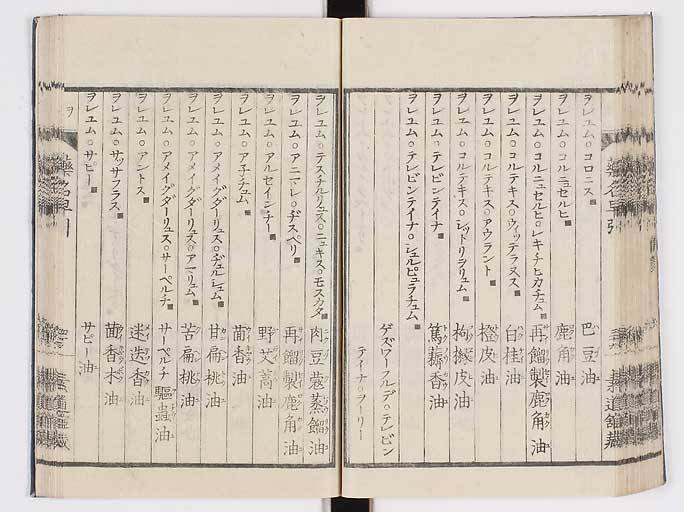 ヲレユム○コロニス 巴豆油
ヲレユム○コルニュセルヒ 鹿角油
ヲレユム○コルニュセルヒ○レキチヒカチュム 再餾製鹿角油
ヲレユム○コルテキス○ウィッテラヌス 白桂油
ヲレユム○コルテキス○アウラント 橙皮油
ヲレユム○コルテキス○シットリヲリュム 枸櫞皮油
ヲレユム○テレビンテイナ 篤耨香油
ヲレユム○テレビンテイナ○シュルピュラチュム
ゲズワーフルデ○テレビン
テイナ○ヲーリー
ヲレユム○テスチルリュス○ニュキス○モスカタ 肉豆蔲蒸餾油
ヲレユム○アニマレ○ヂスペリ 再餾製鹿角油
ヲレユム○アルセイシナー 野艾蒿油
ヲレユム○ア子チュム 茴香油
ヲレユム○アメイグダーリュス○ヂュルシュム 甘扁桃油
ヲレユム○アメイグダーリュス○アマリュム 苦扁桃油
ヲレユム○アメイグダーリュス○サーペルチ サーペルチ驅蟲油
ヲレユム○アントス 迷迭香油
ヲレユム○サッサフラス 茴香木油
ヲレユム○サビー サビー油
ヲ
藥名早引